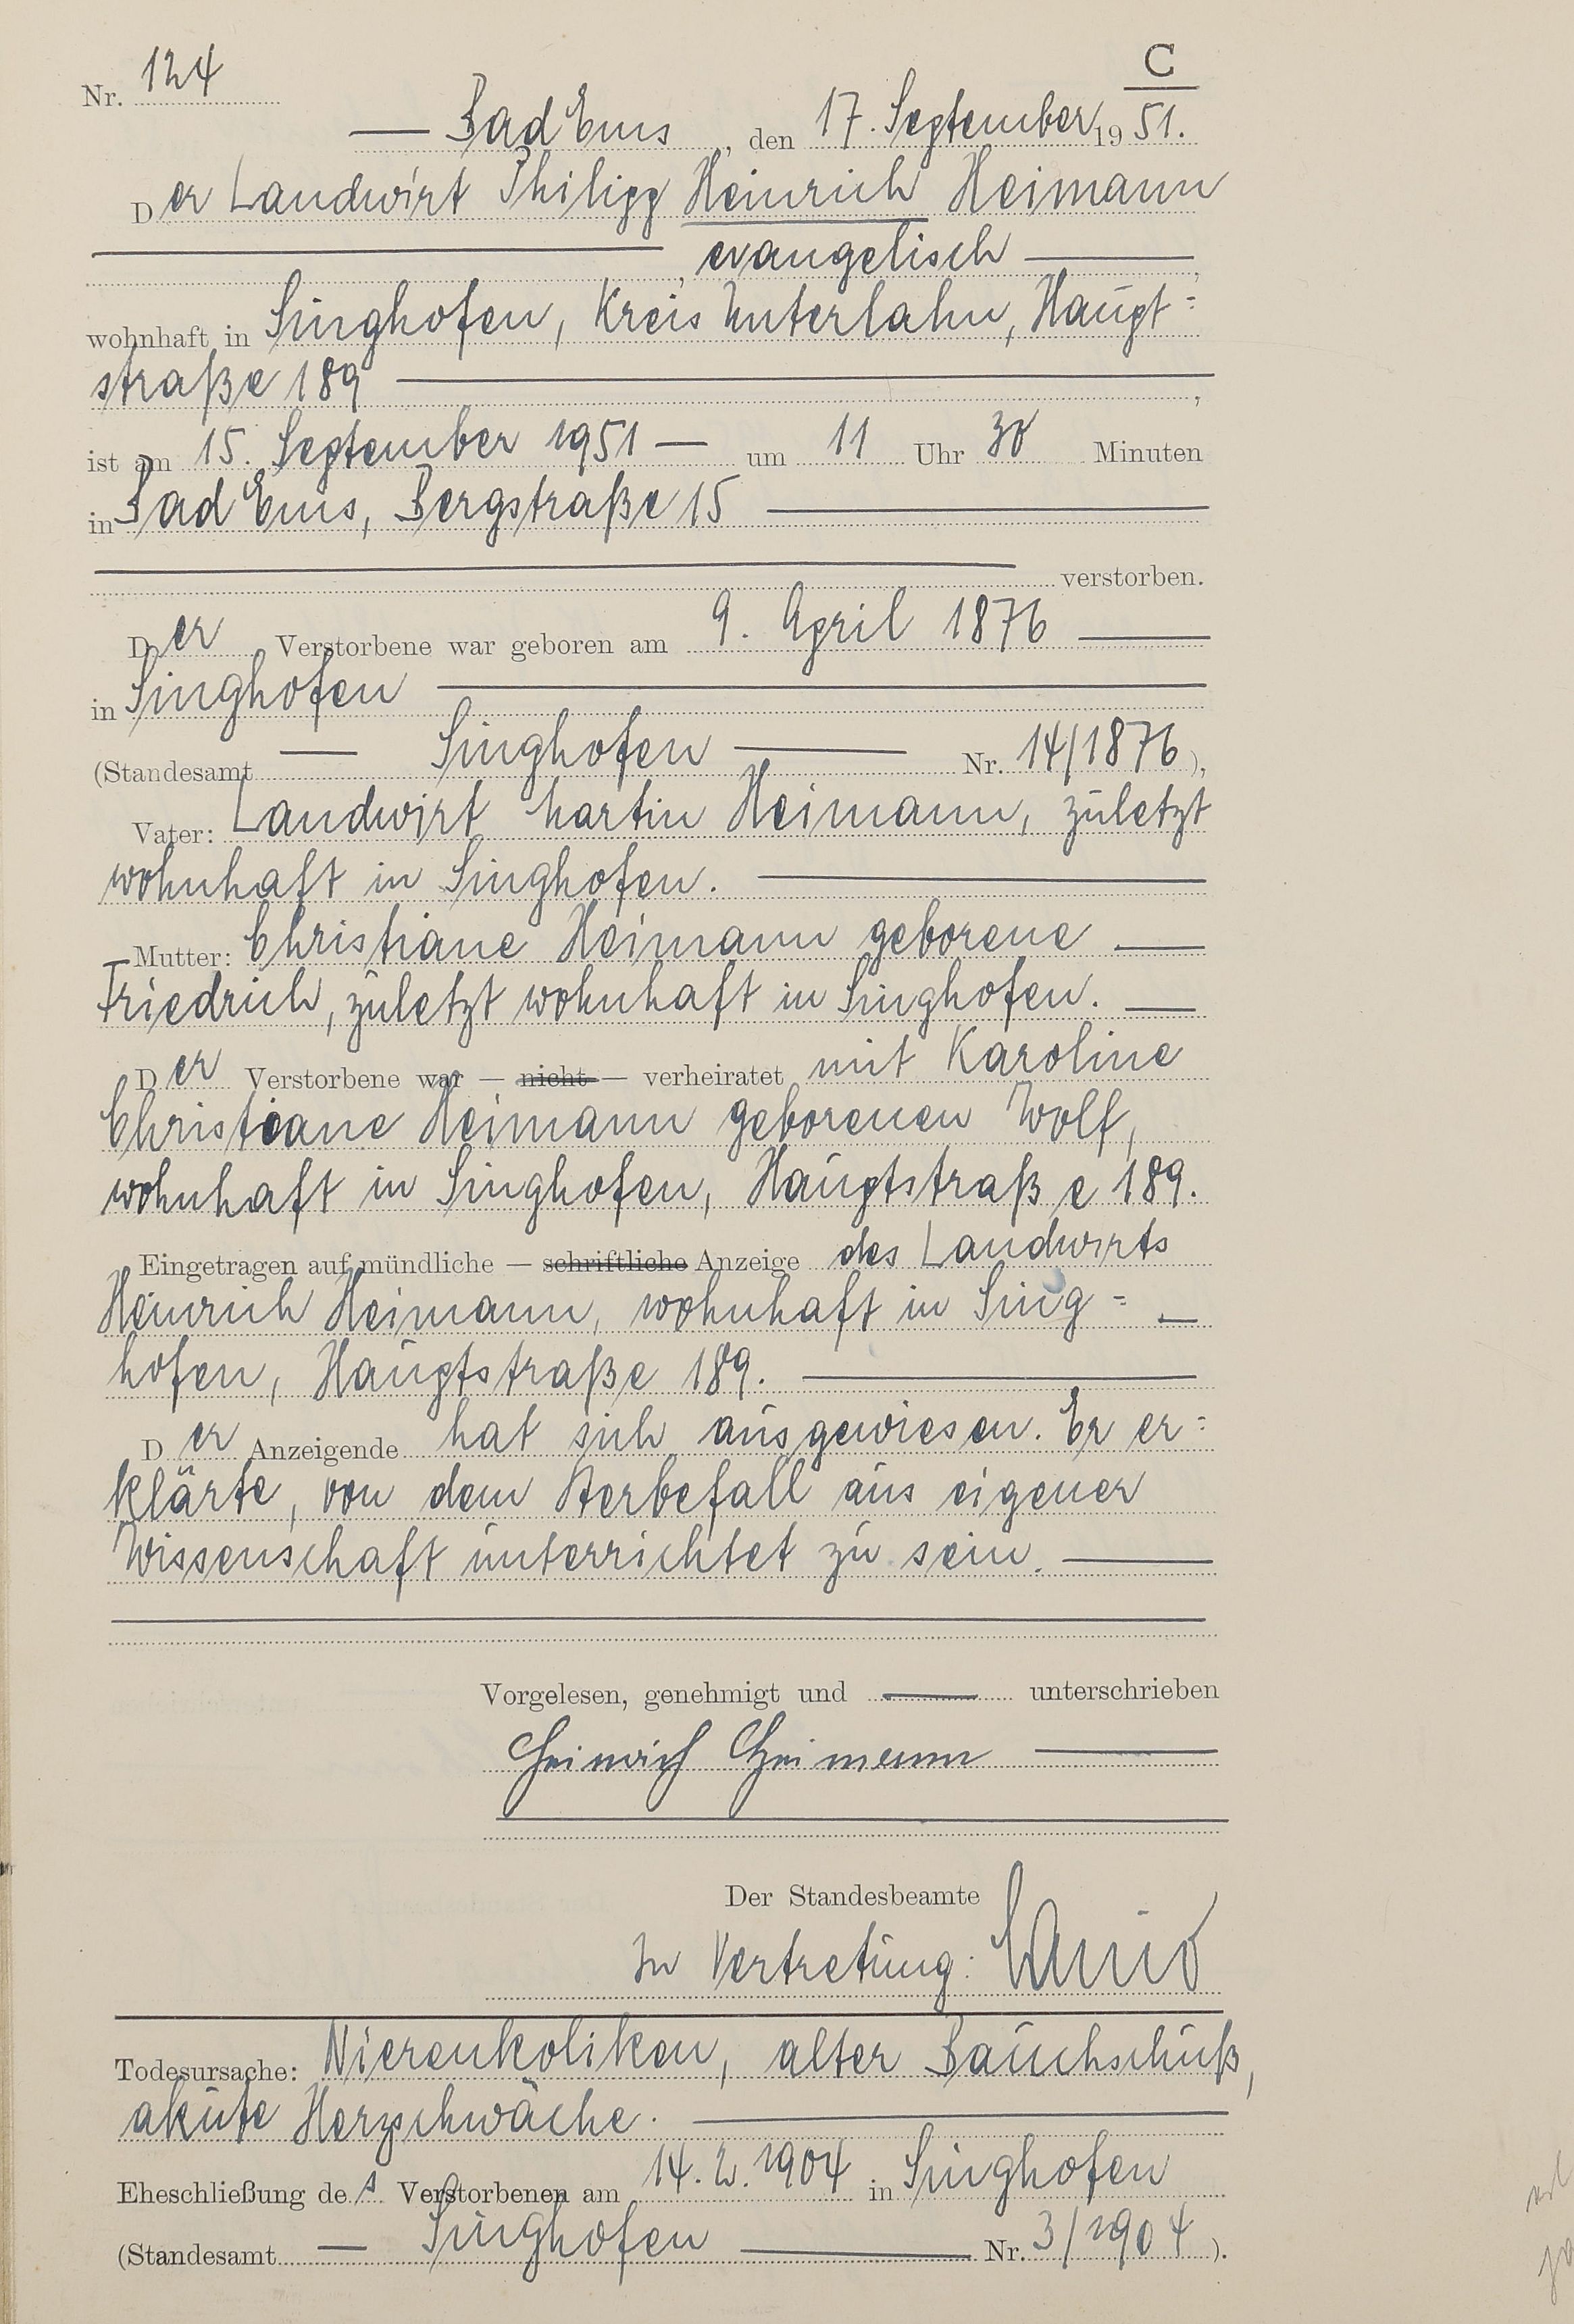 C
Nr. 124
Bad Ems, den 17. September 1951.
Der Landwirt Philipp Heinrich Heimann
, evangelisch,
wohnhaft in Singhofen, Kreis Unterlahn, Haupt=
straße 189,
ist am 15. September 1951 um 11 Uhr 30 Minuten
in Bad Ems, Bergstraße 15
verstorben.
Der Verstorbene war geboren am 9. April 1876
in Singhofen
(Standesamt Singhofen Nr. 14/1876),
Vater: Landwirt Martin Heimann, zuletzt
wohnhaft in Singhofen.
Mutter: Christiane Heimann geborene
Friedrich, zuletzt wohnhaft in Singhofen.
Der Verstorbene war — nicht — verheiratet mit Karoline
Christiane Heimann geborenen Wolf,
wohnhaft in Singhofen, Hauptstraße 189.
Eingetragen auf mündliche — schriftliche Anzeige des Landwirts
Heinrich Heimann, wohnhaft in Sing=
hofen, Hauptstraße 189.
Der Anzeigende hat sich ausgewiesen. Er er=
klärte, von dem Sterbefall aus eigener
Wissenschaft unterrichtet zu sein.
Vorgelesen, genehmigt und unterschrieben
Heinrich Heimann
Der Standesbeamte
In Vertretung:
Todesursache: Nierenkoliken, alter Bauchschuß,
akute Herzschwäche.
Eheschließung des Verstorbenen am 14.2.1904 in Singhofen
(Standesamt Singhofen Nr. 3/1904).